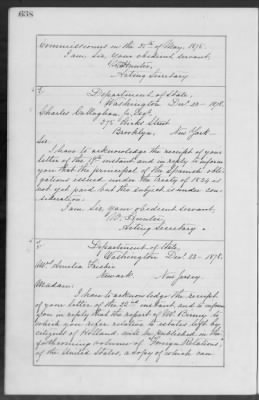 658
Commissioners on the 25th of May, 1875.
I am, Sir, your obedient servant,
W. Hunter,
Acting Secretary
Department of State,
Washington Dec. 23 - 1878.
Charles Callaghan, Jr. Esqr.
375 Hicks Street
Brooklyn, New York -
Sir:
I have to acknowledge the receipt of your
letter of the 18th instant and in reply to inform
you that the principal of the Spanish obli-
gations issued under the treaty of 1834 is
not yet paid but the subject is under con-
sideration.
I am, Sir, your obedient servant,
W. Hunter,
Acting Secretary.
Department of State,
Washington Dec. 23 - 1878.
Mrs. Amelia
Newark, New Jersey.
Madam:
I have to acknowledge the receipt
of your letter of the 22nd instant and to inform
you in reply that the report of Mr. Birney to
which you refer relative to estates left by
citizens of Holland will be published in the
forthcoming volume of "Foreign Relations"
of the United States, a copy of which can